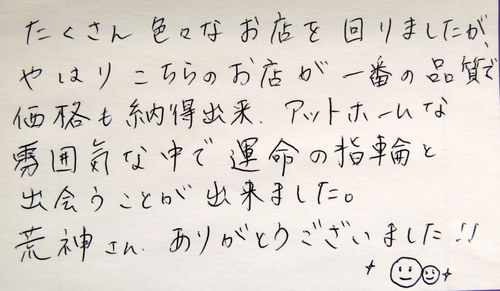 たくさん色々なお店を回りましたが、
やはりこちらのお店が一番の品質で
価格も納得出来、アットホームな
雰囲気な中で運命の指輪と
出会うことが出来ました。
荒神さん、ありがとうございました!!